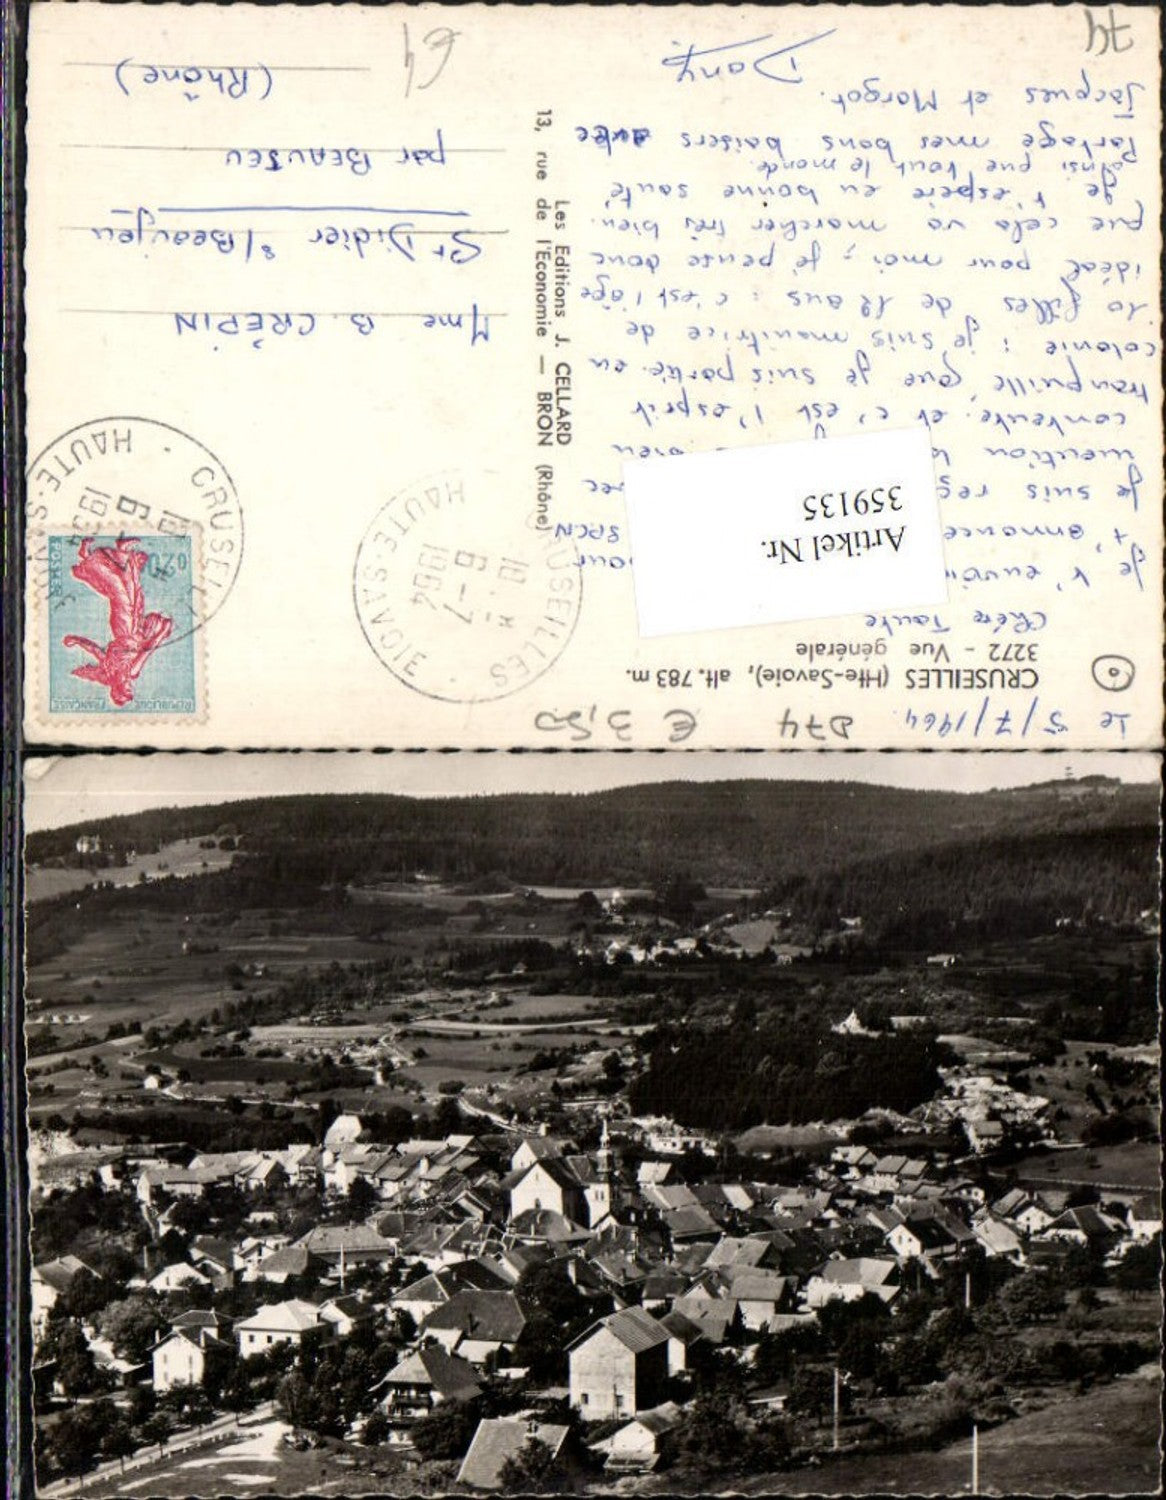 Le 5/7/1964.
D74
€ 3,50
CRUSEILLES (Hte-Savoie), alt. 783 m.
3272 - Vue générale
Chère Tante
Je t'envoie
t'annonce SPCN
Je suis
mention bien
contente. et c'est l'esprit
tranquille que je suis partie en
colonie : je suis monitrice de
10 filles de 12 ans : c'est l'âge
idéal pour moi ; je pense donc
que cela va marcher très bien.
Je t'espère en bonne santé
ainsi que tout le monde.
Partage mes bons baisers avec
Jacques et Margot.
Dany
74
Artikel Nr.
359135
Les Editions J. CELLARD
13, rue de l'Economie — BRON (Rhône)
CRUSEILLES
HAUTE-SAVOIE
18 H
6-7
1964
REPUBLIQUE FRANÇAISE
0,20
POSTES
CRUSEILLES
HAUTE-SAVOIE
Mme B. CRÉPIN
St Didier s/Beaujeu
par BEAUJEU
(Rhône)
64